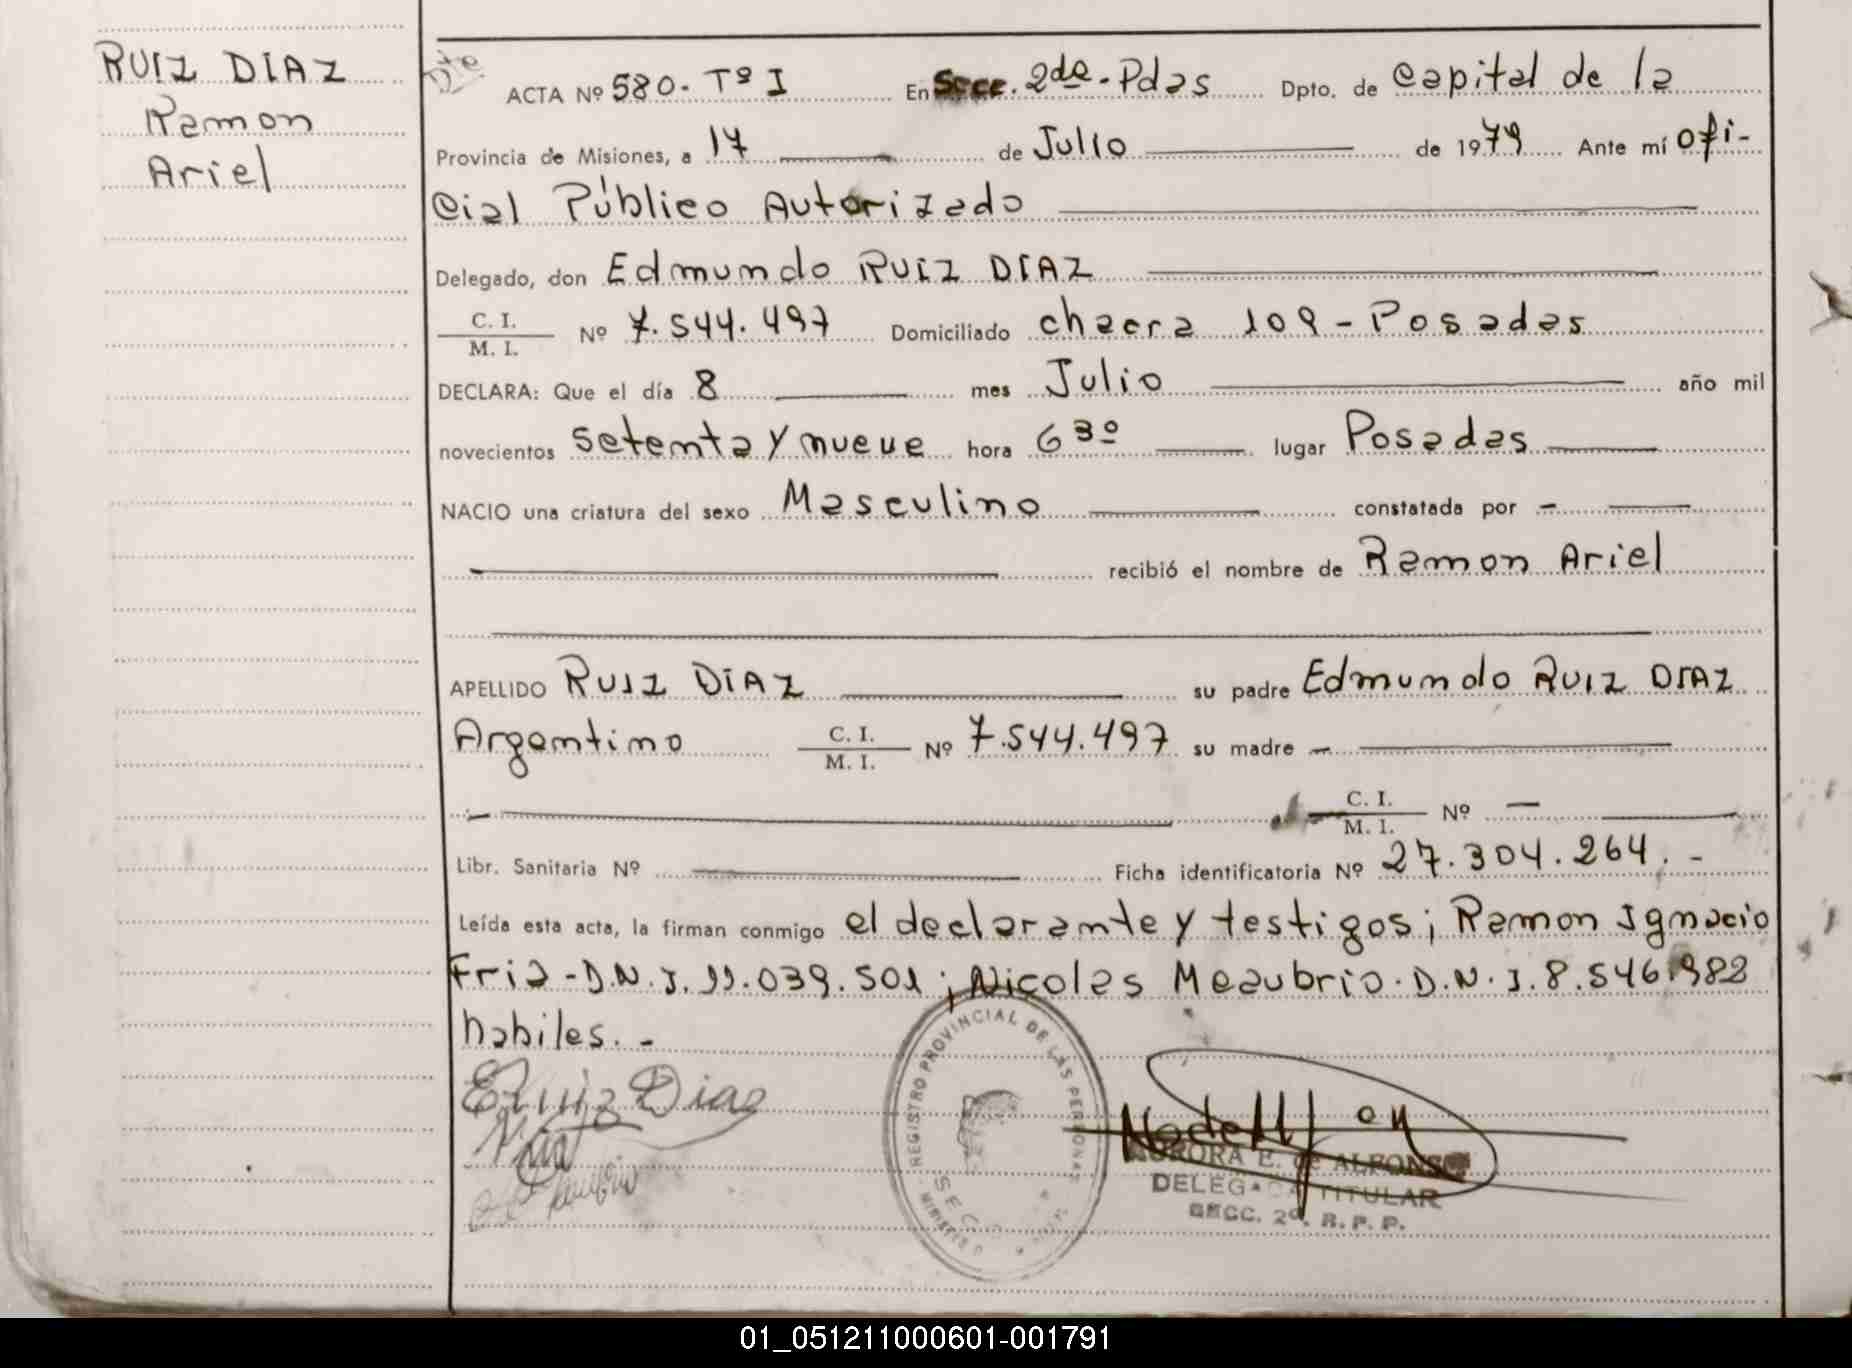 RUIZ DIAZ
Ramon
Ariel
Dte
ACTA Nº 580. Tº I En Secc. 2da. Pdas Dpto. de Capital de la
Provincia de Misiones, a 17 de Julio de 1979 Ante mí Ofi-
cial Público Autorizado
Delegado, don Edmundo RUIZ DIAZ
C. I.
M. I. Nº 7.544.497 Domiciliado chacra 109 - Posadas
DECLARA: Que el día 8 mes Julio año mil
novecientos setenta y nueve hora 6 30 lugar Posadas
NACIO una criatura del sexo Masculino constatada por -
recibió el nombre de Ramon Ariel
APELLIDO RUIZ DIAZ su padre Edmundo RUIZ DIAZ
Argentino C. I.
M. I. Nº 7.544.497 su madre -
C. I.
M. I. Nº -
Libr. Sanitaria Nº Ficha identificatoria Nº 27.304.264.-
Leída esta acta, la firman conmigo el declarante y testigos; Ramon Ignacio
Fria - D.N.I. 11.039.501; Nicolas Meaubrio. D.N.I. 8.546.982
habiles.-
E Ruiz Diaz
REGISTRO PROVINCIAL DE LAS PERSONAS
MINISTERIO
SECC
AURORA E. de ALFONSO
DELEGADA TITULAR
SECC. 2ª. R. P. P.
01_051211000601-001791